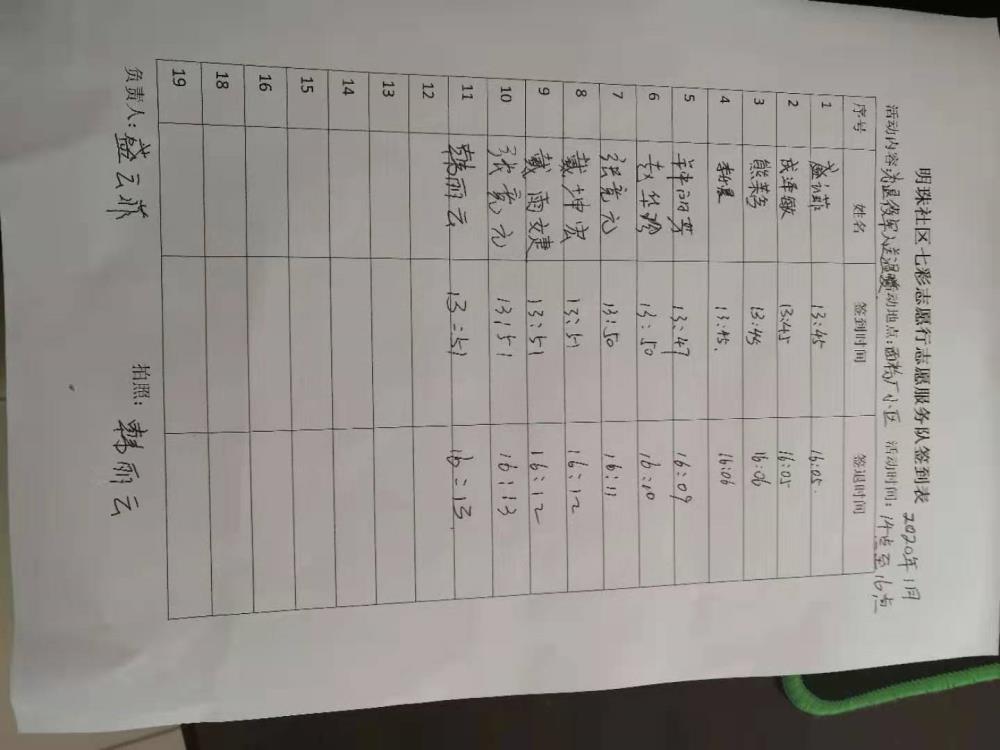 明珠社区七彩志愿行志愿服务队签到表 2020年1月
活动内容:为退役军人送温暖 活动地点:面粉厂小区 活动时间:14点至16点
序号 姓名 签到时间 签退时间
1 盛云菲 13:45 16:05
2 成连敏 13:45 16:05
3 熊 13:45 16:06
4 13:45 16:06
5 13:47 16:09
6 赵华珍 13:50 16:10
7 张竟元 13:50 16:11
8 戴坤宏 13:51 16:12
9 戴雨 13:51 16:12
10 张竟元 13:51 16:13
11 韩丽云 13:51 16:13
12
13
14
15
16
18
19
负责人:盛云菲 拍照:韩丽云